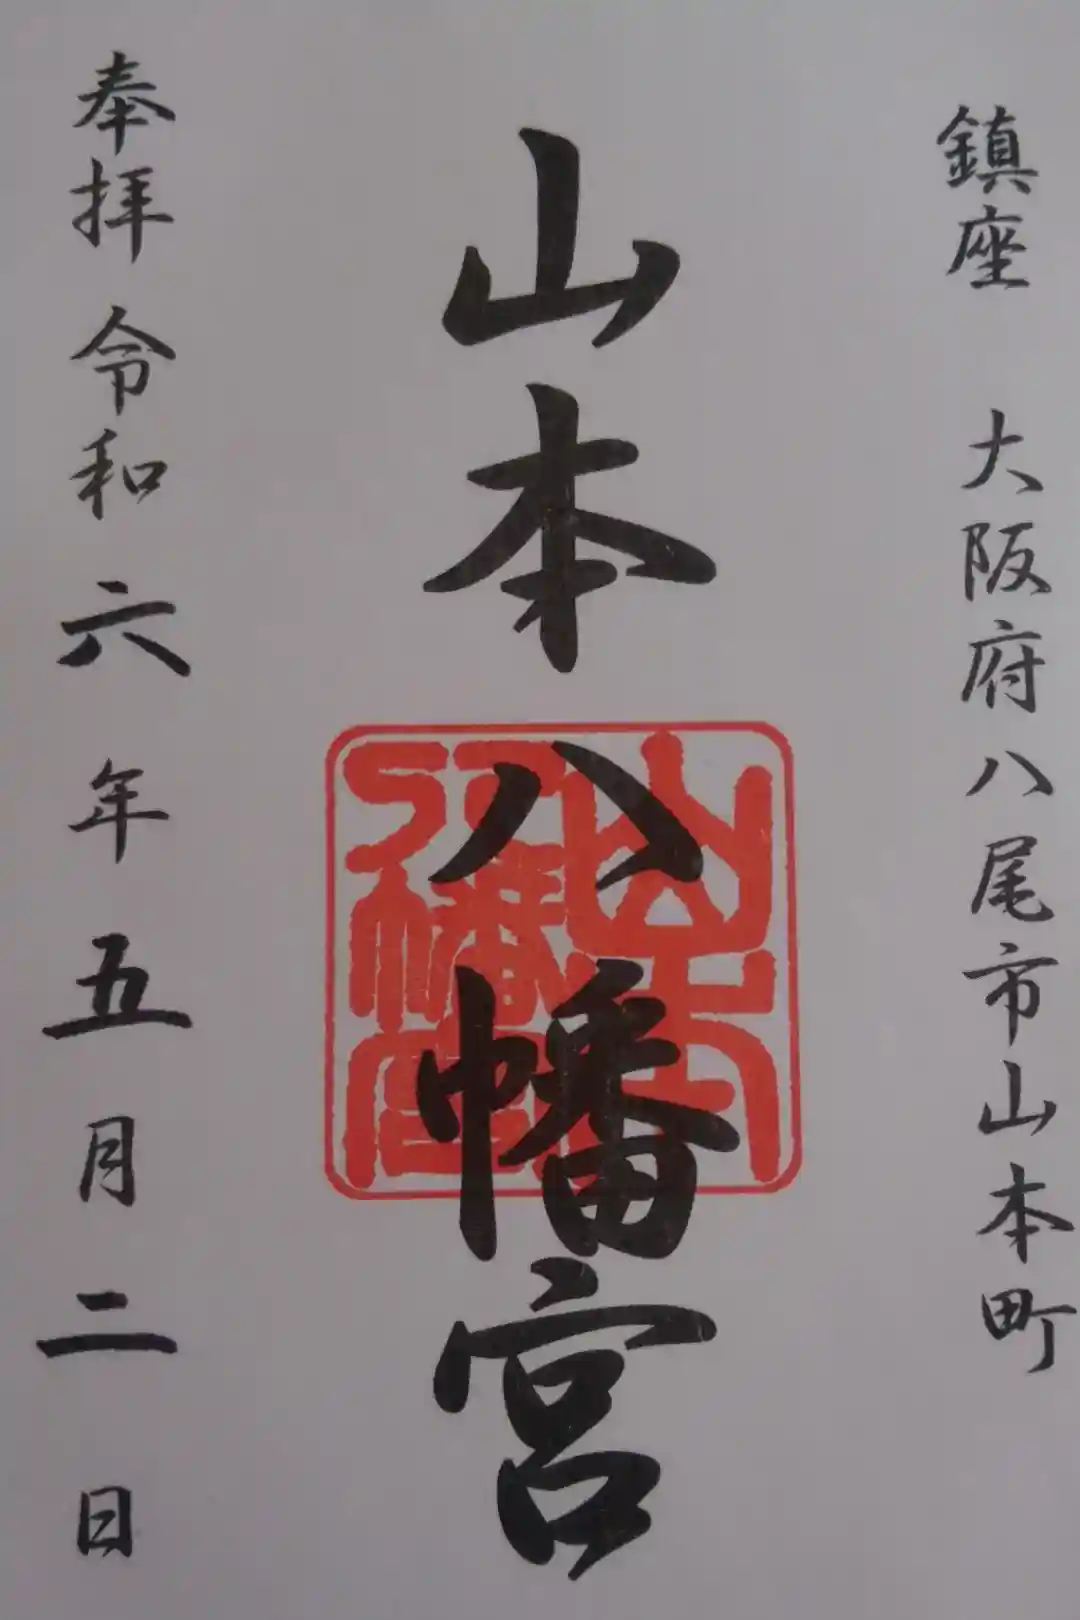 鎮座 大阪府八尾市山本町
山本八幡宮
山本
八幡宮
奉拝 令和六年五月二日